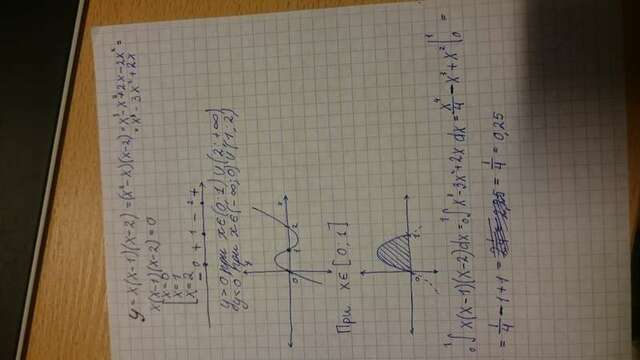 y = x(x-1)(x-2) = (x²-x)(x-2) = x³-x²+2x-2x² =
= x³-3x²+2x
x(x-1)(x-2) = 0
[ x=0
x=1
x=2
- 0 + 1 - 2 +
y>0 при x∈(0;1)∪(2;+∞)
y<0 при x∈(-∞;0)∪(1;2)
y
x
0 1 2
При x∈[0;1]
0 1
₀∫¹ x(x-1)(x-2)dx = ₀∫¹ x³-3x²+2x dx = x⁴/4 - x³ + x² |₀¹ =
= 1/4 - 1 + 1 = 1/4 = 0,25